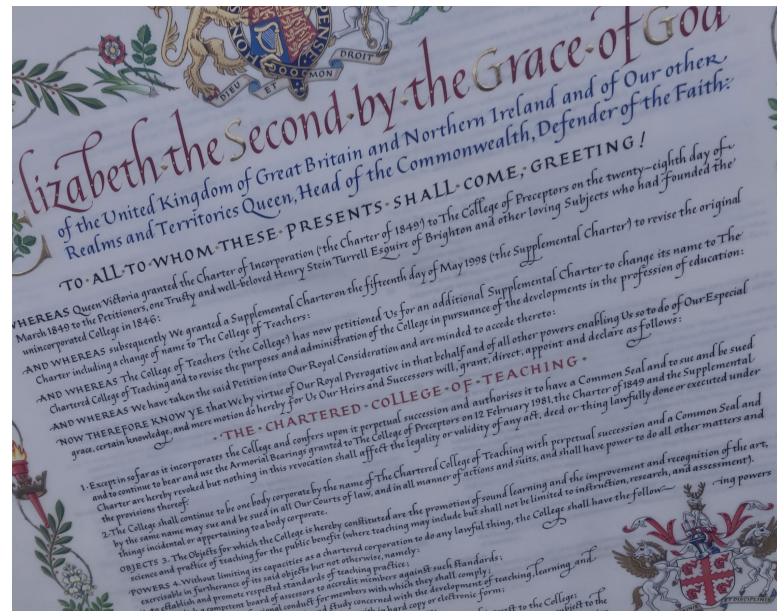 DIEU ET MON DROIT
Elizabeth the Second by the Grace of God
of the United Kingdom of Great Britain and Northern Ireland and of Our other
Realms and Territories Queen, Head of the Commonwealth, Defender of the Faith:
TO·ALL·TO·WHOM·THESE·PRESENTS·SHALL·COME, GREETING!
WHEREAS Queen Victoria granted the Charter of Incorporation ('the Charter of 1849') to The College of Preceptors on the twenty-eighth day of
March 1849 to the Petitioners, one Trusty and well-beloved Henry Stein Turrell Esquire of Brighton and other loving Subjects who had founded the
unincorporated College in 1846:
AND WHEREAS subsequently We granted a Supplemental Charter on the fifteenth day of May 1998 ('the Supplemental Charter') to revise the original
Charter including a change of name to The College of Teachers:
AND WHEREAS The College of Teachers ('the College') has now petitioned Us for an additional Supplemental Charter to change its name to The
Chartered College of Teaching and to revise the purposes and administration of the College in pursuance of the developments in the profession of education:
AND WHEREAS We have taken the said Petition into Our Royal Consideration and are minded to accede thereto:
NOW THEREFORE KNOW YE that We by virtue of Our Royal Prerogative in that behalf and of all other powers enabling Us so to do of Our Especial
grace, certain knowledge, and mere motion do hereby for Us Our Heirs and Successors will, grant, direct, appoint and declare as follows:
·THE·CHARTERED·COLLEGE·OF·TEACHING·
1. Except in so far as it incorporates the College and confers upon it perpetual succession and authorises it to have a Common Seal and to sue and be sued
and to continue to bear and use the Armorial Bearings granted to The College of Preceptors on 12 February 1981, the Charter of 1849 and the Supplemental
Charter are hereby revoked but nothing in this revocation shall affect the legality or validity of any act, deed or thing lawfully done or executed under
the provisions thereof:
2. The College shall continue to be one body corporate by the name of The Chartered College of Teaching with perpetual succession and a Common Seal and
by the same name may sue and be sued in all Our Courts of law, and in all manner of actions and suits, and shall have power to do all other matters and
things incidental or appertaining to a body corporate.
OBJECTS 3. The Objects for which the College is hereby constituted are the promotion of sound learning and the improvement and recognition of the art,
science and practice of teaching for the public benefit (where teaching may include but shall not be limited to instruction, research, and assessment).
POWERS 4. Without limiting its capacities as a chartered corporation to do any lawful thing, the College shall have the follow-ing powers
exercisable in furtherance of its said objects but not otherwise, namely:
to establish and promote respected standards of teaching practice;
competent board of assessors to accredit members against such standards;
conduct for members with which they shall comply;
study concerned with the development of teaching, learning and
in hard copy or electronic form;
to the College;